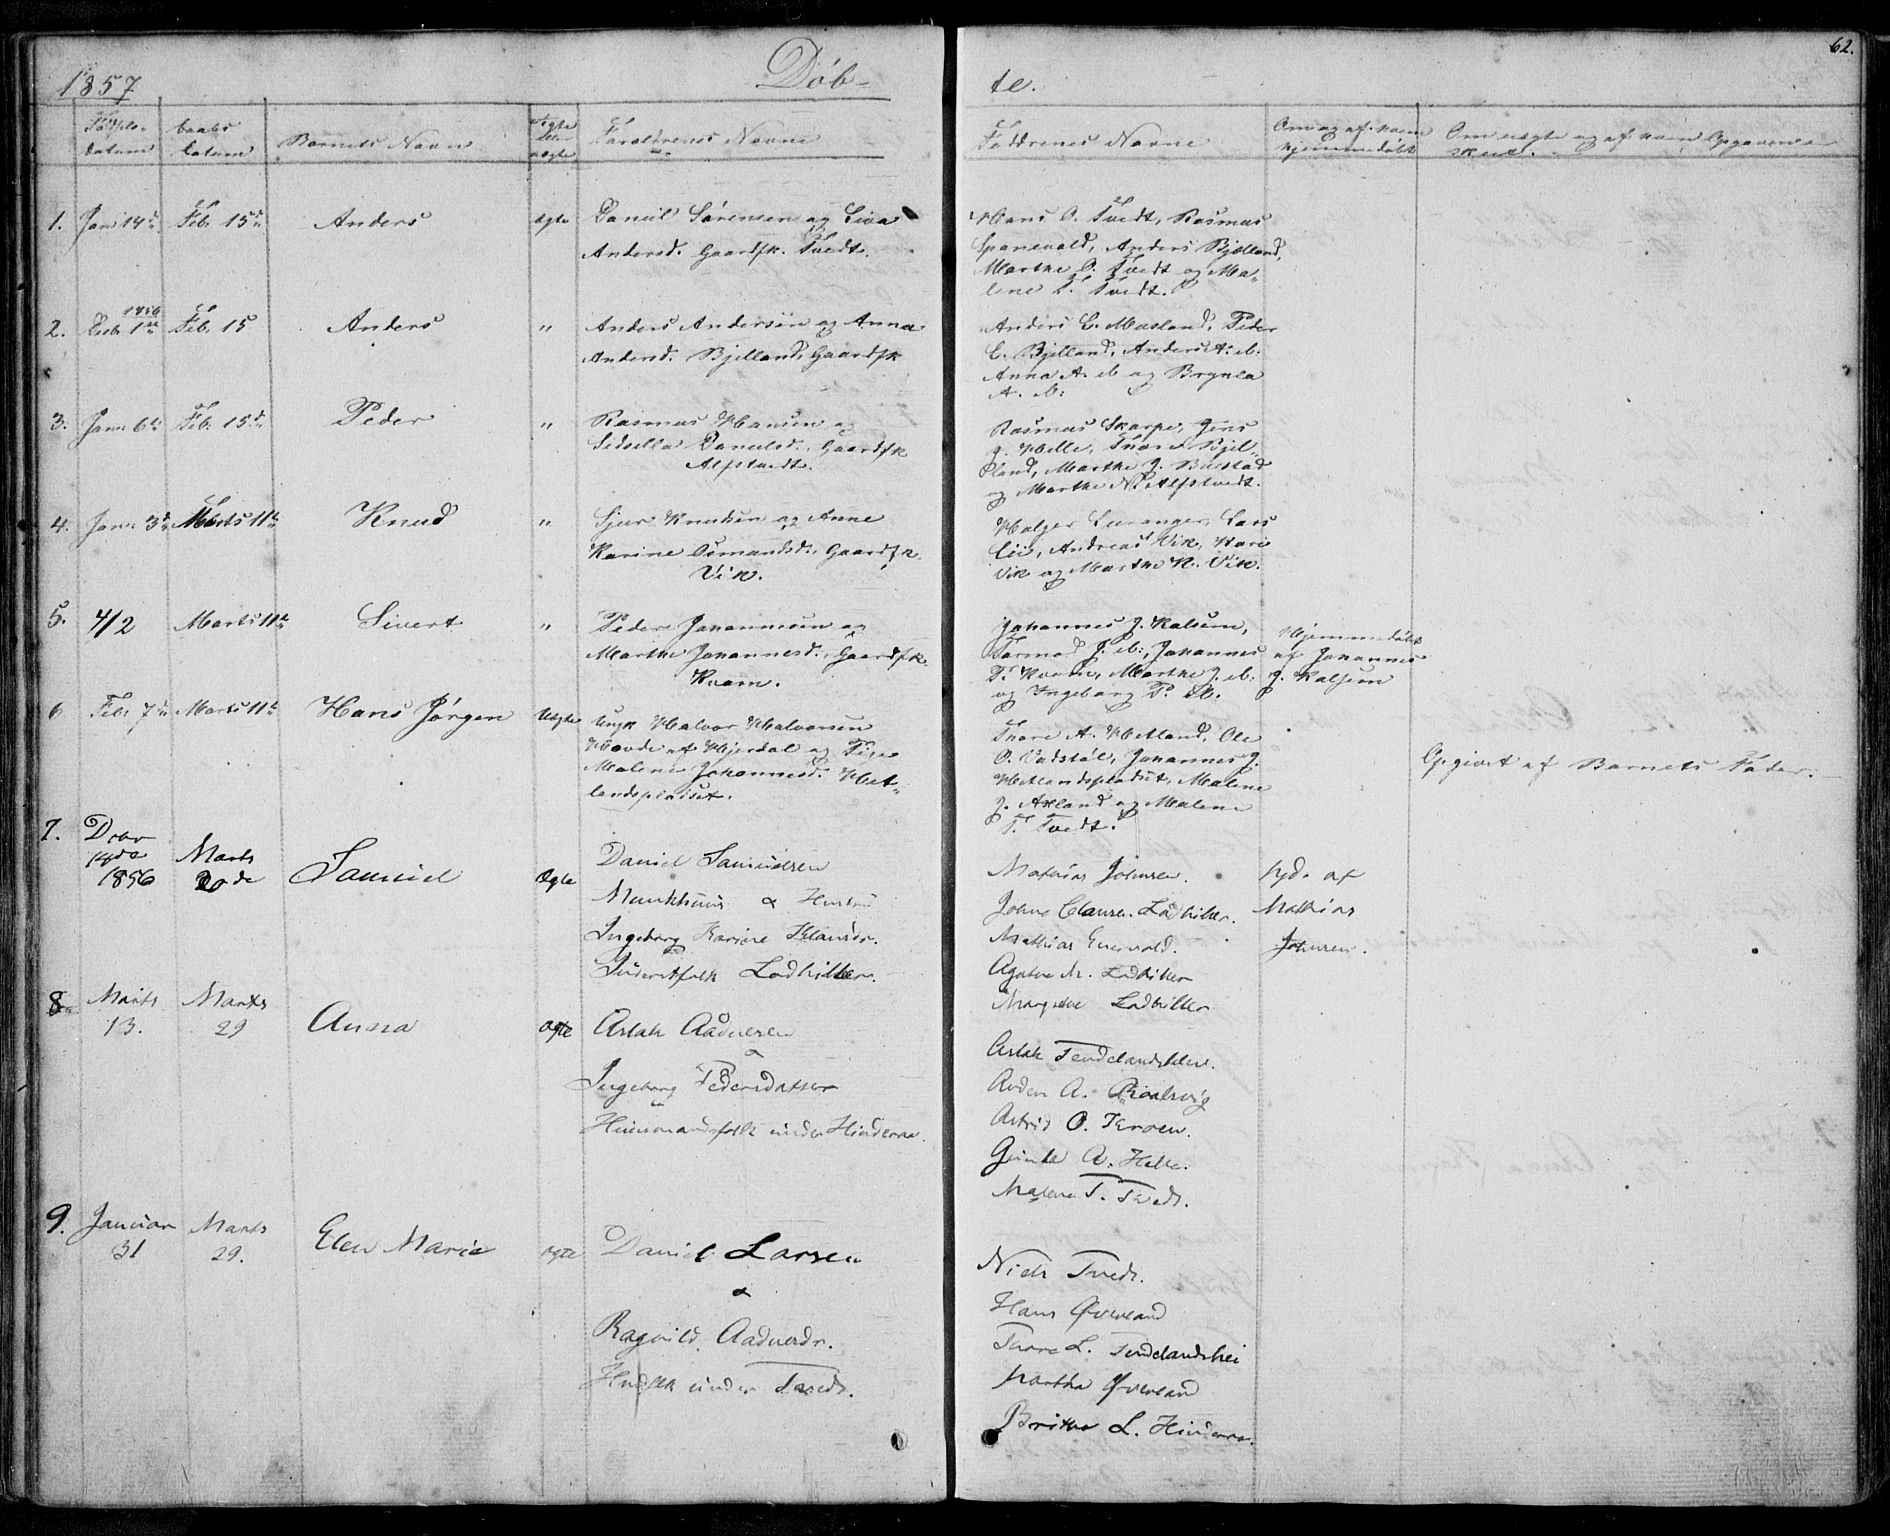 62.
1857
Døb-
te.
Fødsels-
datum
Daabs
datum
Barnets Navn
Ægte
eller
uægte
Forældrenes Navne
Faddrenes Navne
Om og af hvem
hjemmedøbt
Om uægte og af hvem Opgaven er
skeet.
1. Jan 14de Feb. 15de Anders ægte Daniel Sørensen og Siva
Andersd. Gaardfk. Tvedt.
Hans O. Tvedt, Rasmus
Spanevold, Anders Bjelland,
Marthe O. Tvedt og Ma-
lene T. Tvedt.
2. 1856
Dcb. 1ste Feb. 15 Anders " Anders Andersen og Anna
Andersd. Bjelland, Gaardfk
Anders E. Musland, Peder
E. Bjelland, Anders A. ib.
Anna A. ib og Brynla
A. ib.
3. Jan. 6te Feb. 15de Peder " Rasmus Hansen og
Sidsella Danielsd., Gaardfk
Alfstvedt.
Rasmus Skarpe, Jens
J. Helle, Thore Bjel-
land, Marthe J. Bustad
og Marthe N. Alfstvedt.
4. Jan. 3de Marts 11te Knud " Sjur Knudsen og Anne
Karine Osmundsd., Gaardfk
Vik.
Holger Suranger, Lars
Lii, Andreas Vik, Kari
Vik og Marthe K. Vik.
5. 4/2 Marts 11te Sivert " Peder Johannesen og
Marthe Johannesd., Gaardfk.
Kvam.
Johannes J. Kalsem,
Tormod J. ib., Johannes
P. Kvam, Marthe J. ib.
og Ingeborg P. ib.
Hjemmedøbt
af Johannes
J. Kalsem
6 Feb. 7de Marts 11te Hans Jørgen Uægte Ungk Halvor Halvorsen
Hovde af Hjerdal og Pige
Malene Johannesd. Het-
landspladset.
Thore A. Hetland, Ole
O. Vadstøl, Johannes J.
Hetlandspladset, Malene
J. Axland og Malene
T. Tvedt.
Opgivet af Barnets Fader.
7. Dcbr
14de
1856
Marts
20de
Samuel Ægte
Daniel Samuelsen
Munkhuus & Hustru
Ingeborg Karine Klausdr.
Inderstfolk Ladhiller.
Mathias Johnsen.
John Clausen Ladhiller.
Mathias Enevold.
Agathe M. Ladhiller
Margrethe Ladhiller
hjd. af
Mathias
Johnsen.
8 Marts
13.
Marts
29
Anna ægte Aslak Aadnesen
Ingeborg Pedersdatter
Huusmandsfolk under Hinderna.
Aslak Tendelandshelen.
Anden A. Roalsvig
Astrid O. Kroen.
Gunla A. Helle.
Malene T. Tvedt.
9. Januar
31
Marts
29.
Elen Marie ægte Daniel Larsen
&
Ragnild Aadnesdr.
Husfolk under Tvedt.
Niels Tvedt.
Hans Øverland
Thore L. Tendelandshei
Martha Øverland
Brithe L. Hinderna.